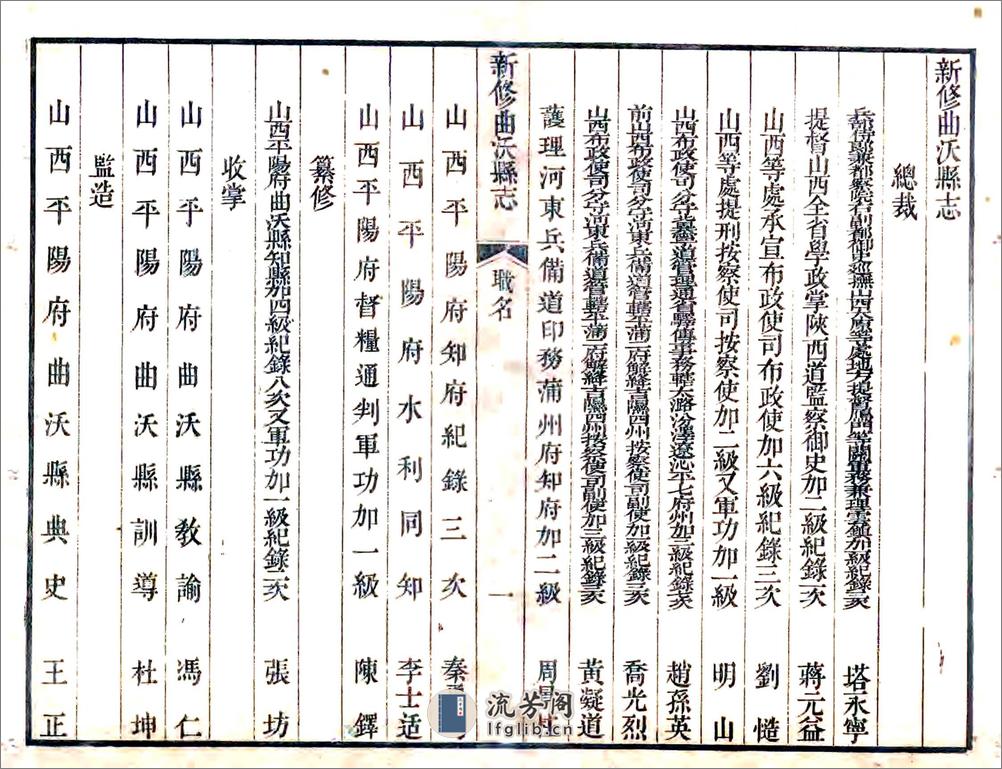 新修曲沃縣志
總裁
兵部侍郞兼都察院右副都御史巡撫山西太原等處地方提督鴈門等關軍務兼理雲鎭加級紀錄三次 塔永寧
提督山西全省學政掌陝西道監察御史加二級紀錄一次 蔣元益
山西等處承宣布政使司布政使加六級紀錄三次 劉慥
山西等處提刑按察使司按察使加二級又軍功加一級 明山
山西布政使司分守冀寧道管理通省驛傳事務轄太潞汾澤遼沁平七府州加三級紀錄 趙孫英
前山西布政使司分守河東兵備道管轄平蒲二府解絳吉隰四州按察使司副使加級紀錄三次 喬光烈
山西布政使司分守河東兵備道管轄平蒲二府解絳吉隰四州按察使司副使加三級紀錄 黃凝道
護理河東兵備道印務蒲州府知府加二級 周
新修曲沃縣志 職名 一
山西平陽府知府紀錄三次 秦
山西平陽府水利同知 李士适
山西平陽府督糧通判軍功加一級 陳鐸
纂修
山西平陽府曲沃縣知縣加四級紀錄八次又軍功加一級紀錄二次 張坊
收掌
山西平陽府曲沃縣教諭 馮仁
山西平陽府曲沃縣訓導 杜坤
監造
山西平陽府曲沃縣典史 王正
流芳閣
lfglib.cn